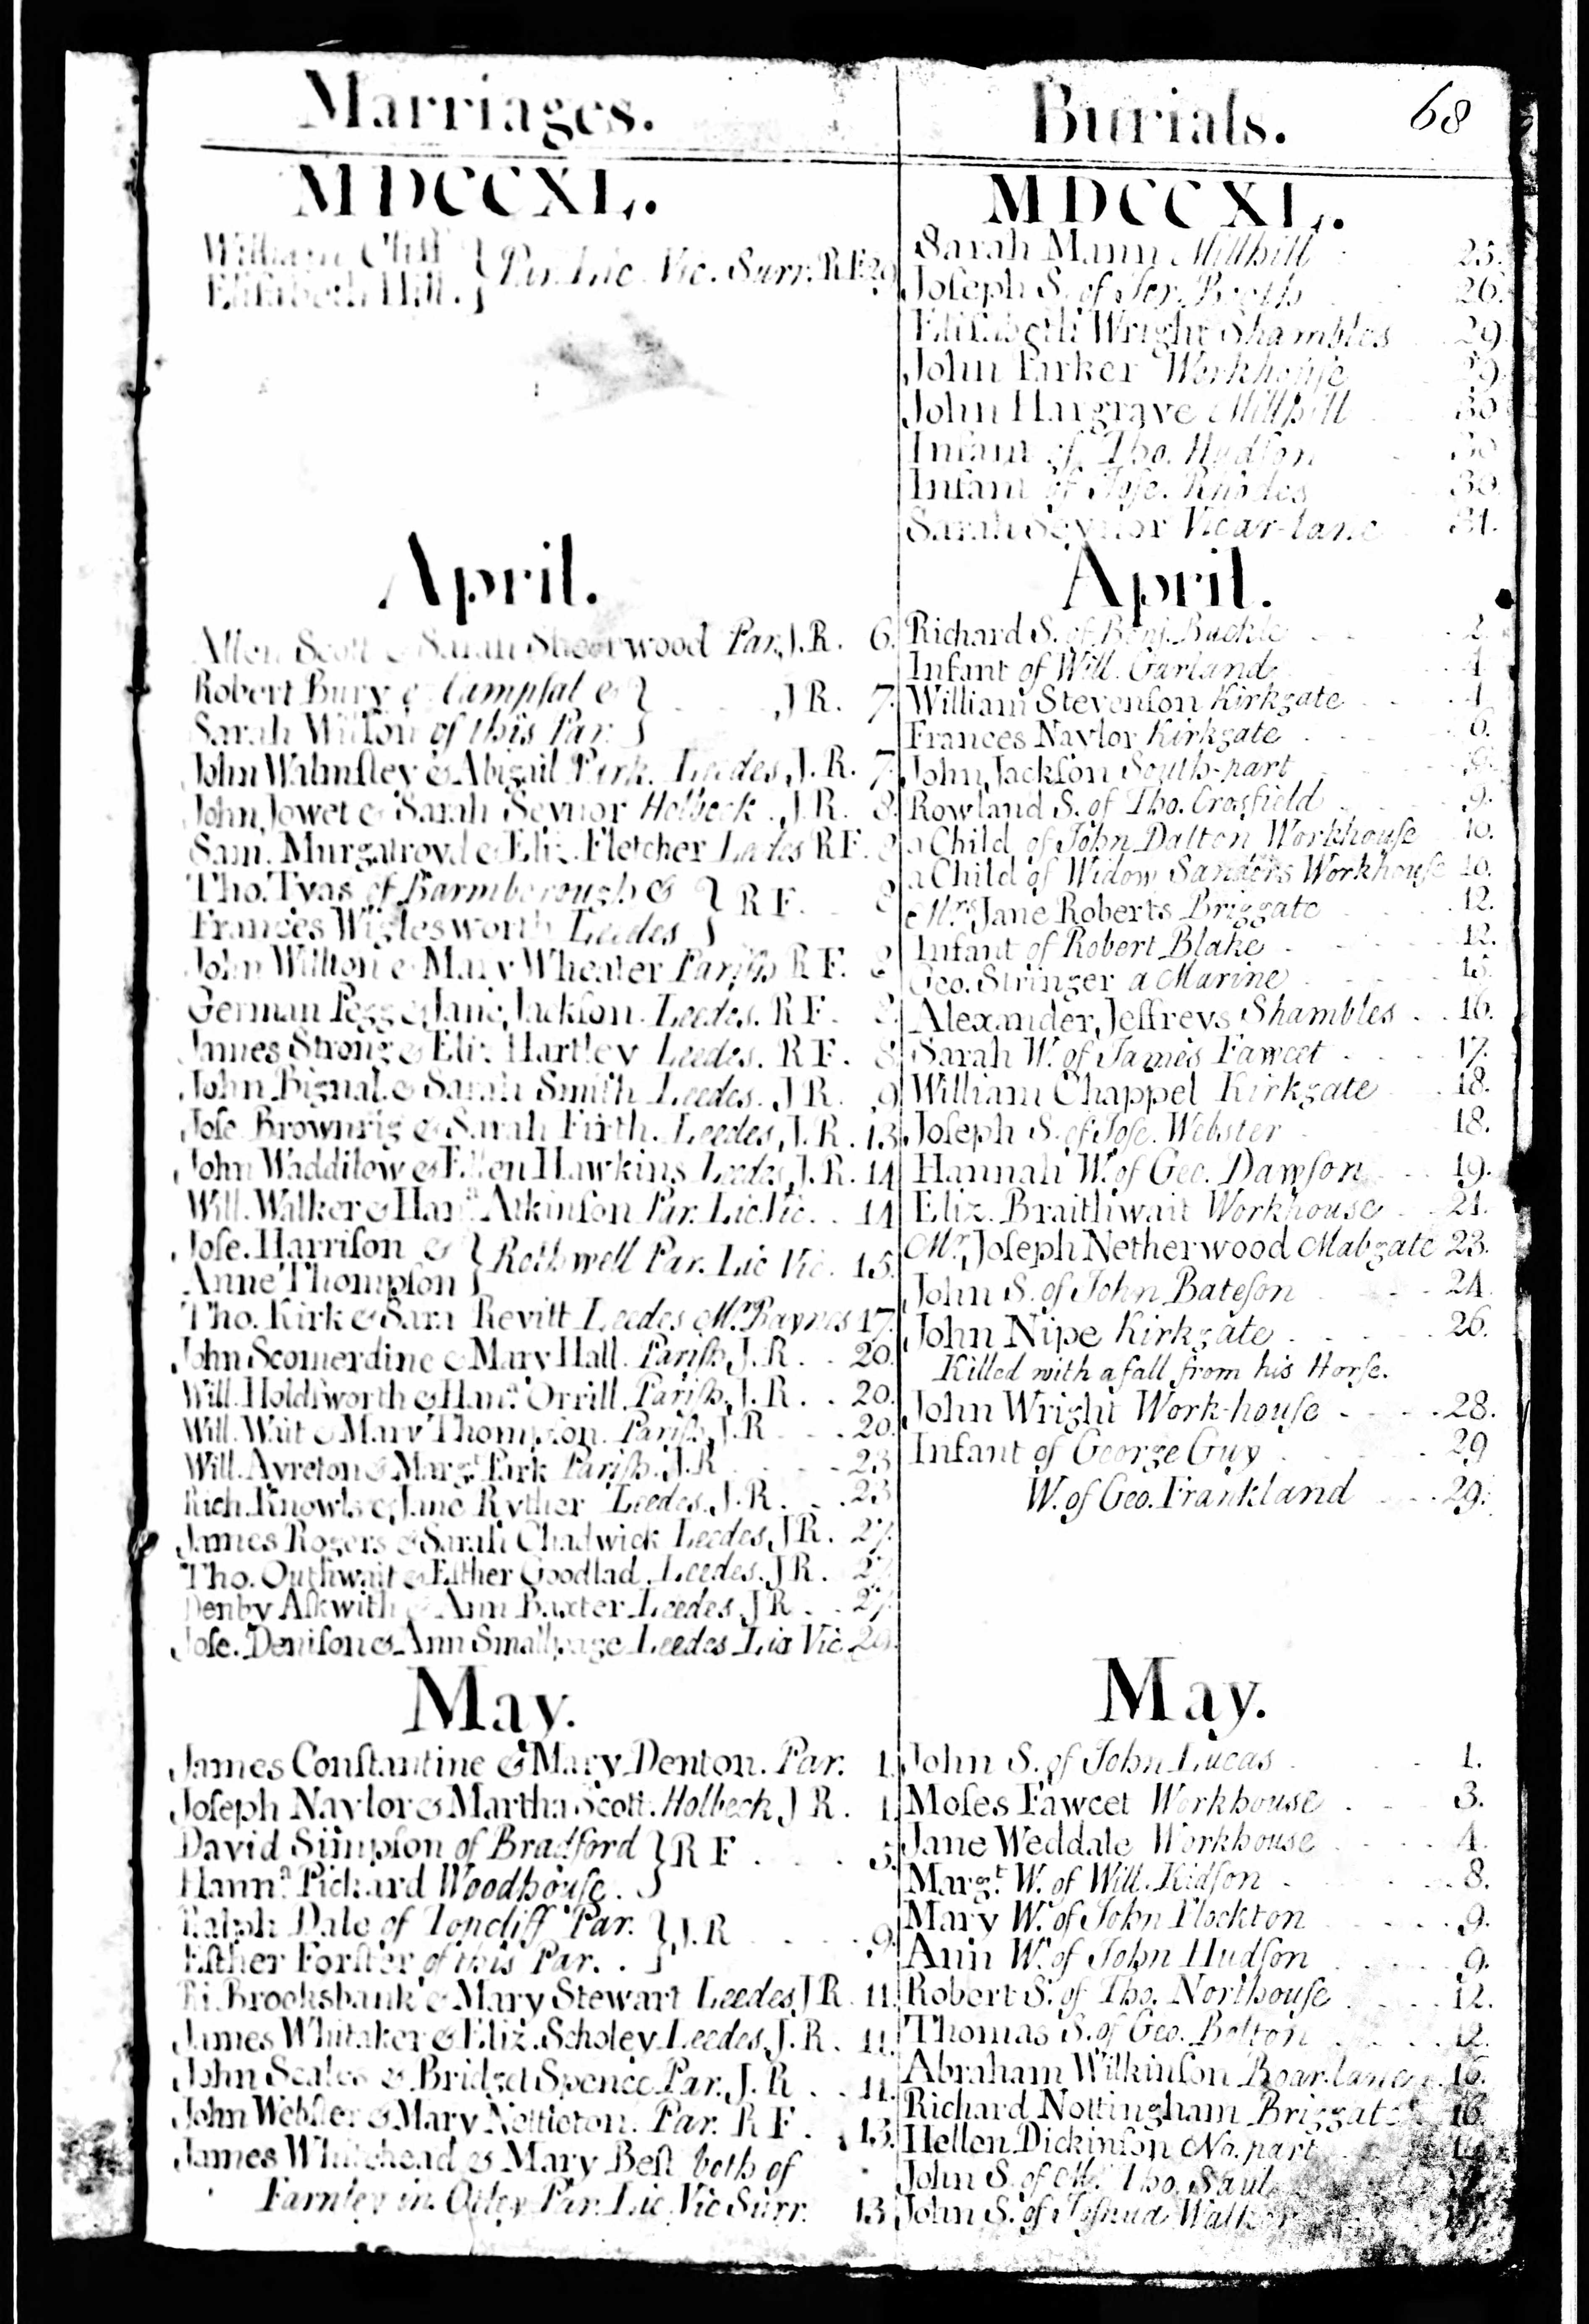 68
Marriages.
MDCCXL.
William Cliff
Elisabeth Hill. } Par. Lic. Vic. Surr. R F. 29
April.
Allen Scott & Sarah Sheerwood Par. J. R. 6.
Robert Bury Campsal &
Sarah Wilson of this Par. } J R. 7.
John Walmsley & Abigail Park. Leedes, J. R. 7.
John Jowet & Sarah Seynor Holbeck. J. R. 8.
Sam. Murgatroyd & Eliz. Fletcher Leedes R F. 8
Tho. Tyas of Barmborough &
Frances Wiglesworth Leedes } R F. 8
John Willson & Mary Wheater Parish R F. 8
German Pegg & Jane Jackson. Leedes. R F. 8.
James Strong & Eliz. Hartley Leedes. R F. 8.
John Bignal & Sarah Smith Leedes. J R. 9
Jose. Brownrig & Sarah Firth. Leedes, J. R. 13
John Waddilow & Ellen Hawkins Leedes, J. R. 14
Will. Walker & Han.ª Atkinson Par. Lic. Vic. 14
Jose. Harrison &
Anne Thompson } Rothwell Par. Lic Vic. 15.
Tho. Kirk & Sara Revitt Leedes Mr. Baynes 17.
John Scomerdine & Mary Hall. Parish, J. R. 20.
Will. Holdsworth & Han.ª Orrill. Parish, J. R. 20.
Will. Wait & Mary Thompson. Parish, J. R 20.
Will. Ayreton & Marg.t Park Parish. J. R 23
Rich. Knowls & Jane Ryther Leedes. J. R. 23
James Rogers & Sarah Chadwick Leedes, J R. 27.
Tho. Outhwait & Esther Goodlad. Leedes. J R. 27.
Denby Askwith & Ann Baxter Leedes. J R. 27.
Jose. Denison & Ann Smallpage Leedes Lic Vic. 29.
May.
James Constantine & Mary Denton. Par. 1.
Joseph Naylor & Martha Scott. Holbeck J R. 1.
David Simpson of Bradford
Hann.ª Pickard Woodhouse. } R F 5.
Ralph Dale of Topcliff Par.
Esther Forster of this Par. } J. R 9.
Ri. Brooksbank & Mary Stewart Leedes, J R. 11.
James Whitaker & Eliz. Scholey Leedes, J. R. 11.
John Scales & Bridget Spence Par. J. R 11.
John Webster & Mary Nettleton. Par. R F. 13.
James Whitehead & Mary Best both of
Farnley in Otley Par. Lic. Vic Surr. 13
Burials.
MDCCXL.
Sarah Mann Millhill 25.
Joseph S. of Jer. Booth 26.
Elisabeth Wright Shambles 29
John Parker Workhouse 29
John Hargrave Millhill 30
Infant of Tho. Hudson 30
Infant of Jose. Rhodes 30.
Sarah Seynor Vicar-lane 31.
April.
Richard S. of Benj. Buckle 2
Infant of Will. Garland 4
William Stevenson Kirkgate 4
Frances Naylor Kirkgate 6.
John Jackson South-part 8.
Rowland S. of Tho. Crosfield 9.
a Child of John Dalton Workhouse 10.
a Child of Widow Sanders Workhouse 10.
Mrs. Jane Roberts Briggate 12.
Infant of Robert Blake 12.
Geo. Stringer a Marine 15.
Alexander Jeffreys Shambles 16.
Sarah W. of James Fawcet 17.
William Chappel Kirkgate 18.
Joseph S. of Jose. Webster 18.
Hannah W. of Geo. Dawson 19.
Eliz. Braithwait Workhouse 21.
Mr. Joseph Netherwood Mabgate 23.
John S. of John Bateson 24.
John Nipe Kirkgate 26.
Killed with a fall from his Horse.
John Wright Work-house 28.
Infant of George Guy 29
W. of Geo. Frankland 29.
May.
John S. of John Lucas 1.
Moses Fawcet Workhouse 3.
Jane Weddale Workhouse 4.
Marg.t W. of Will. Kidson 8.
Mary W. of John Flockton 9.
Ann W. of John Hudson 9.
Robert S. of Tho. Northouse 12.
Thomas S. of Geo. Bolton 12.
Abraham Wilkinson Boar-lane 16.
Richard Nottingham Briggate 16.
Hellen Dickinson No. part
John S. of Mr. Tho. Saul
John S. of Joshua Walker